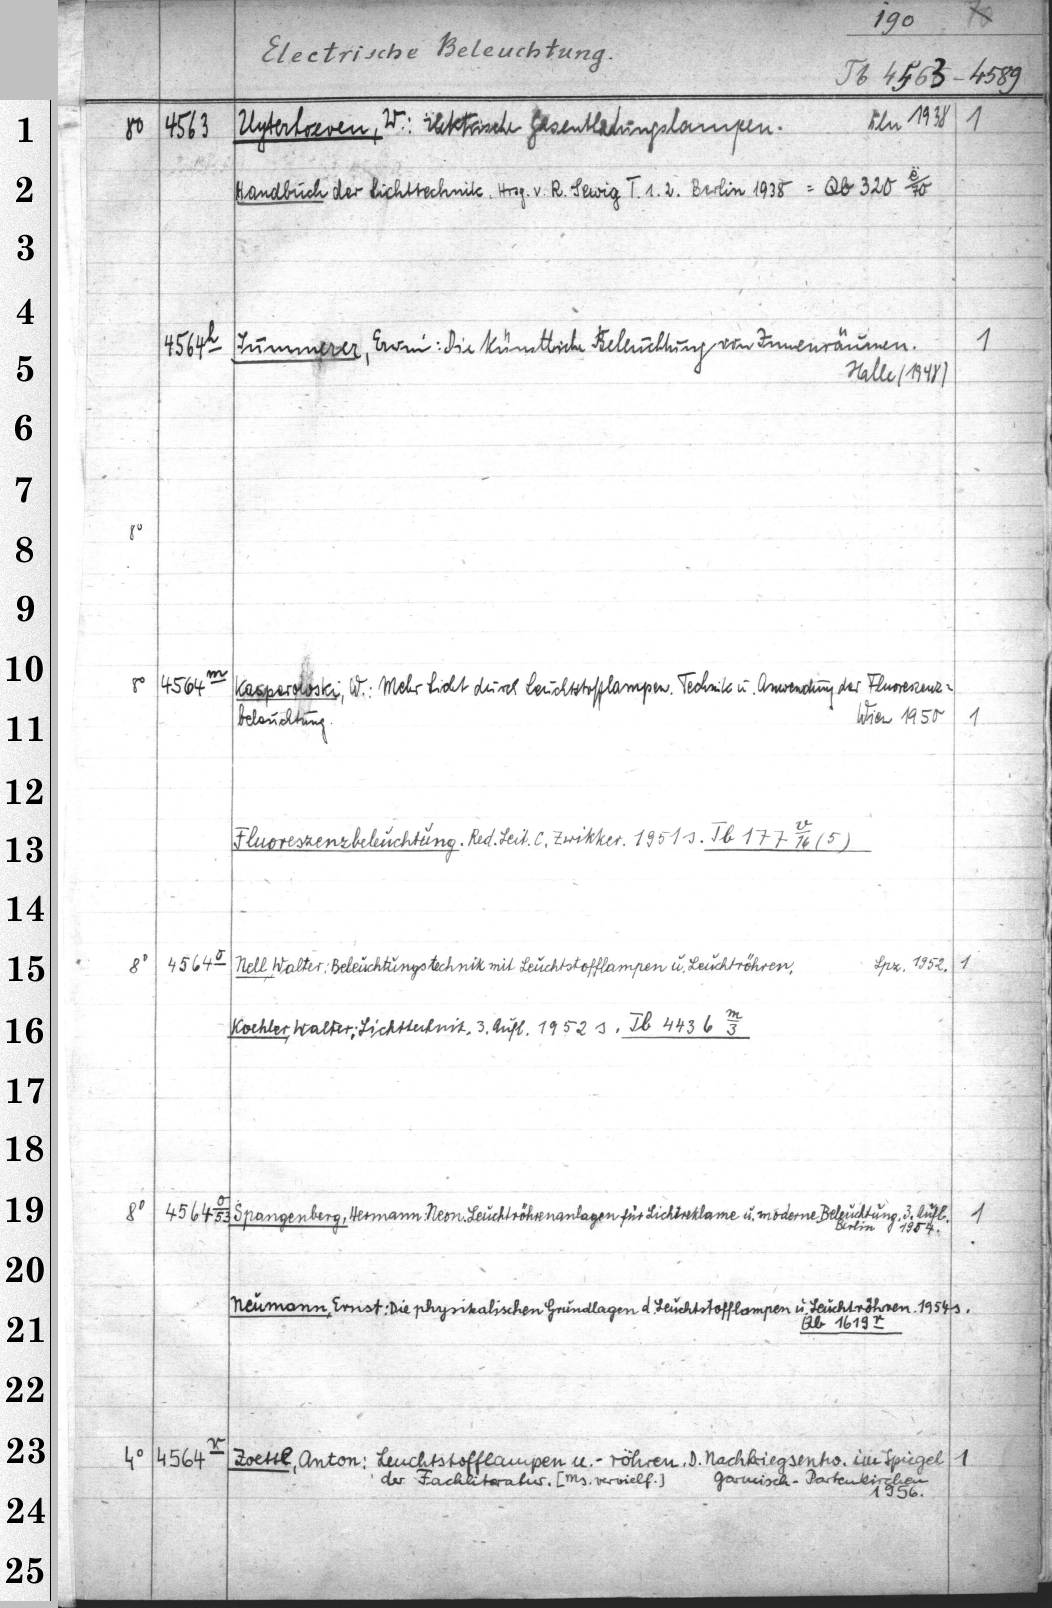 190 70
Electrische Beleuchtung.
Tb 4563-4589
1 8o 4563 Uyterhoeven, W.: Elektrische Gasentladungslampen. Bln 1938 1
2 Handbuch der Lichttechnik. Hrsg. v. R. Sewig T. 1. 2. Berlin 1938 = Qb 320 e/70
3
4
4564h Summerer, Erwin: Die künstliche Beleuchtung von Innenräumen. 1
5 Halle (1948)
6
7
8o
8
9
10 8o 4564m Kasperowski, W.: Mehr Licht durch Leuchtstofflampen. Technik u. Anwendung der Fluoreszenz=
11 beleuchtung. Wien 1950 1
12
13 Fluoreszenzbeleuchtung. Red. Leit. C. Zwikker. 1951 s. Tb 177 v/16 (5)
14
15 8o 4564o Nell, Walter: Beleuchtungstechnik mit Leuchtstofflampen u. Leuchtröhren. Lpz. 1952. 1
16 Koehler, Walter: Lichttechnik. 3. Aufl. 1952 s. Tb 4436 m/3
17
18
19 8o 4564 o/53 Spangenberg, Hermann: Neon. Leuchtröhrenanlagen für Lichtreklame u. moderne Beleuchtung. 3. Aufl. 1
Berlin 1954.
20
Neumann, Ernst: Die physikalischen Grundlagen d. Leuchtstofflampen u. Leuchtröhren. 1954 s.
21 Qb 1619r
22
23 4o 4564r Zoettl, Anton: Leuchtstofflampen u. - röhren. D. Nachkriegsentw. im Spiegel 1
der Fachliteratur. [Ms. vervielf.] Garmisch-Partenkirchen
1956.
24
25